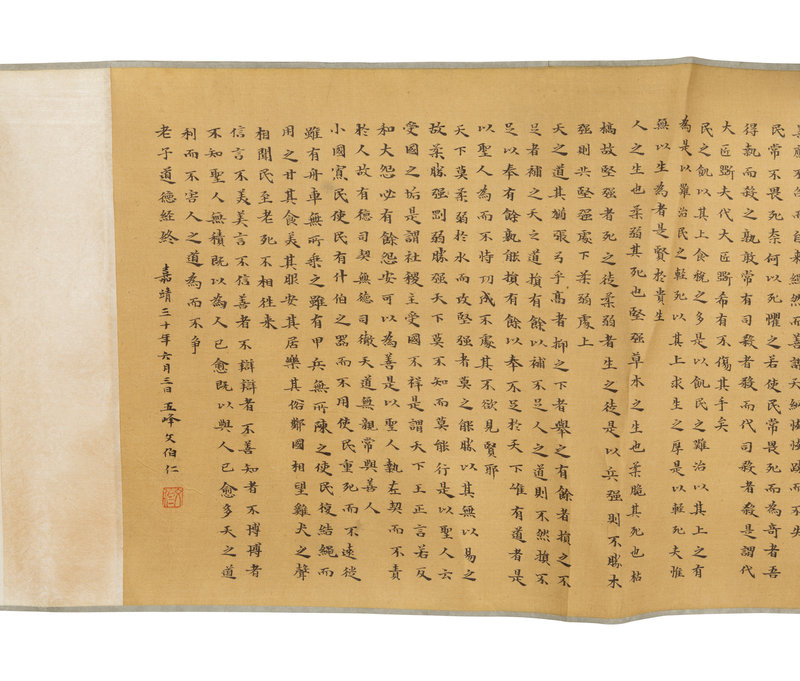 而自來繟然而善謀天網恢恢踈而不失
民常不畏死柰何以死懼之若使民常畏死而為奇者吾
得執而殺之孰敢常有司殺者殺而代司殺者殺是謂代
大匠斲夫代大匠斲希有不傷其手矣
民之飢以其上食稅之多是以飢民之難治以其上之有
為是以難治民之輕死以其上求生之厚是以輕死夫惟
無以生為者是賢於貴生
人之生也柔弱其死也堅强草木之生也柔脆其死也枯
槁故堅强者死之徒柔弱者生之徒是以兵强則不勝木
强則共堅强處下柔弱處上
天之道其猶張弓乎髙者抑之下者舉之有餘者損之不
足者補之天之道損有餘以補不足人之道則不然損不
足以奉有餘孰能損有餘以奉不足於天下唯有道者是
以聖人為而不恃功成不處其不欲見賢耶
天下莫柔弱於水而攻堅强者莫之能勝以其無以易之
故柔勝强剛弱勝强天下莫不知而莫能行是以聖人云
受國之垢是謂社稷主受國不祥是謂天下王正言若反
和大怨必有餘怨安可以為善是以聖人執左契而不責
於人故有德司契無德司徹天道無親常與善人
小國寡民使民有什伯之器而不用使民重死而不遠徙
雖有舟車無所乘之雖有甲兵無所陳之使民復結繩而
用之甘其食美其服安其居樂其俗鄰國相望雞犬之聲
相聞民至老死不相往來
信言不美美言不信善者不辯辯者不善知者不博博者
不知聖人無積既以為人已愈既以與人已愈多天之道
利而不害人之道為而不争
老子道德經終 嘉靖三十年六月三日五峰文伯仁